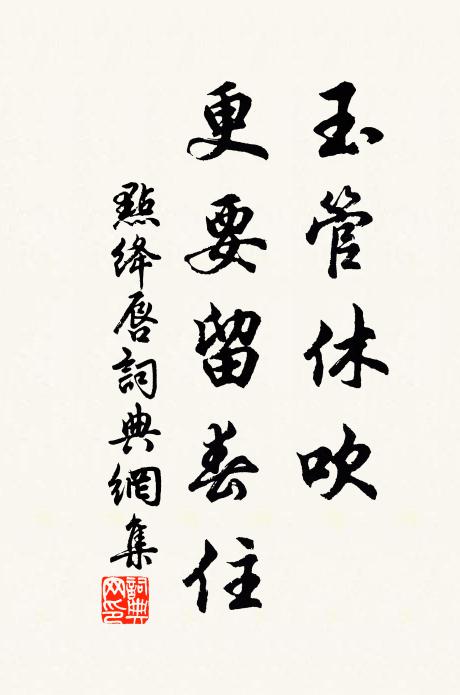 玉管休吹
更要留春住
點絳唇詞典網集
詞典網印